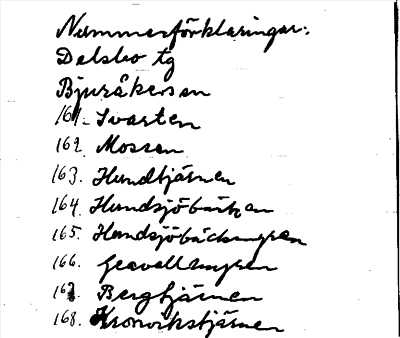 Nummerförklaringar:
Delsbo tg
Bjuråkers sn
161. Svarten
162. Mossen
163. Hundtjärnen
164. Hundsjöbäcken
165. Hundsjöbäcksmyren
166. Gravallmyren
167. Bergtjärnen
168. Kronvikstjärnen